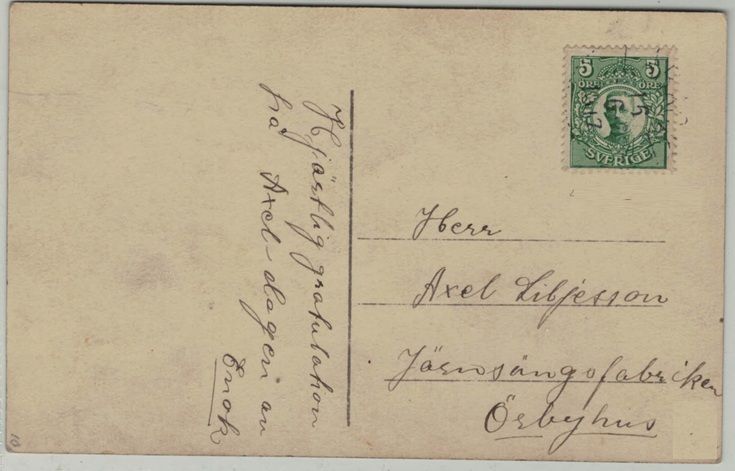 Hjärtlig gratulation
på Axel-dagen av
Enok
5 5
ÖRE ÖRE
SVERIGE
15
Herr
Axel Liljesson
Järnsängsfabriken
Örbyhus
10